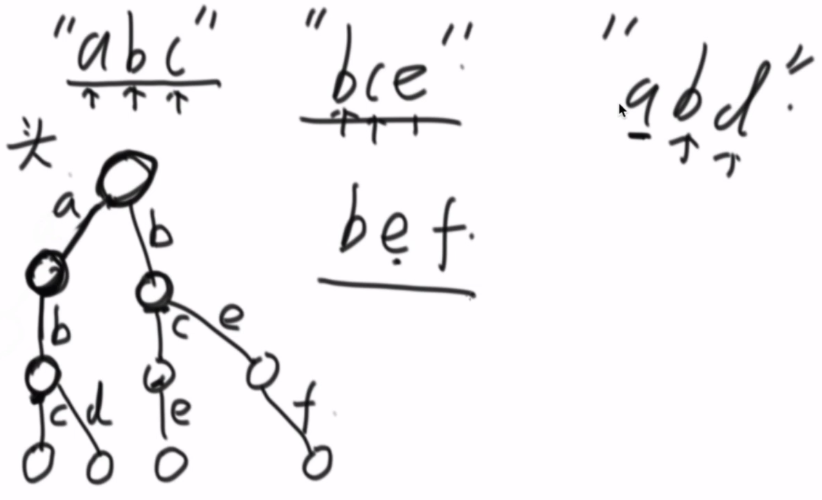 "abc" "bce" "abd"
头
bef.
a b
b c e
c d e f